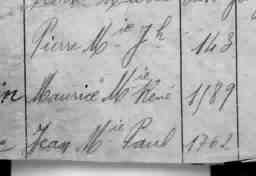 Pierre Mie Jh 143
in Maurice Mie René 1589
Jean Mie Paul 1762